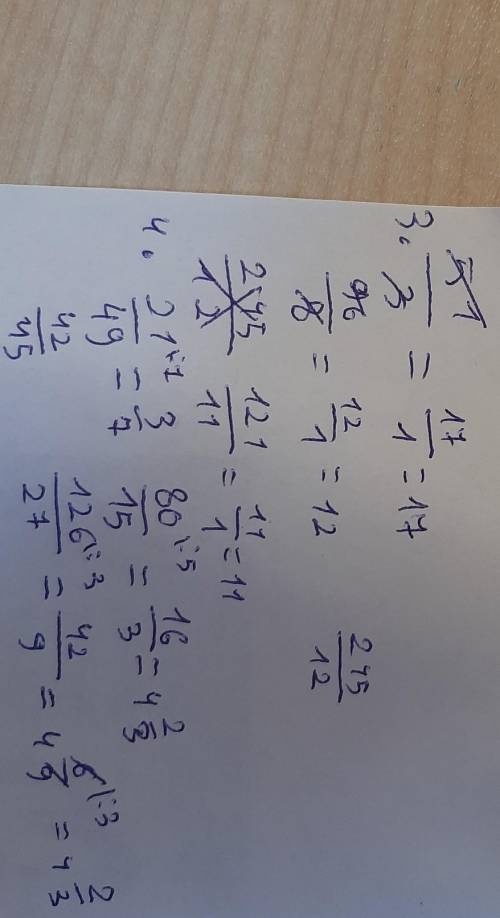 3. 51/3 = 17/1 = 17
96/8 = 12/1 = 12 245/12
121/11 = 11/1 = 11
4. 21/49 |:7 = 3/7 80/15 |:5 = 16/3 = 4 2/3
42/45 126/27 |:3 = 42/9 = 4 6/9 |:3 = 4 2/3